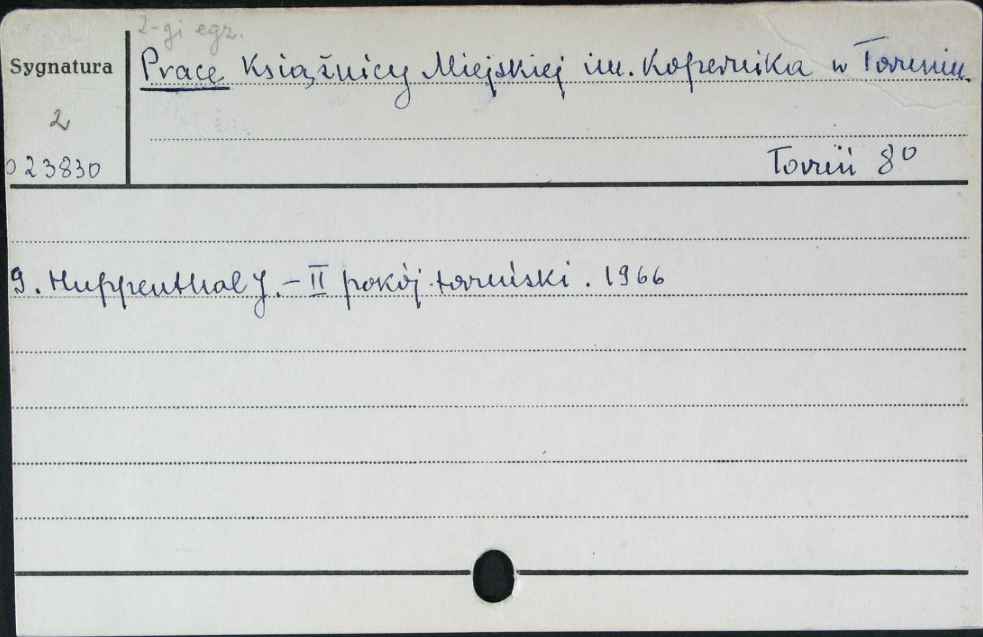 2-gi egz.
Sygnatura
Prace Książnicy Miejskiej im. Kopernika w Toruniu.
2
023830
Toruń 8°
9. Huppenthal J. – II pokój toruński. 1966